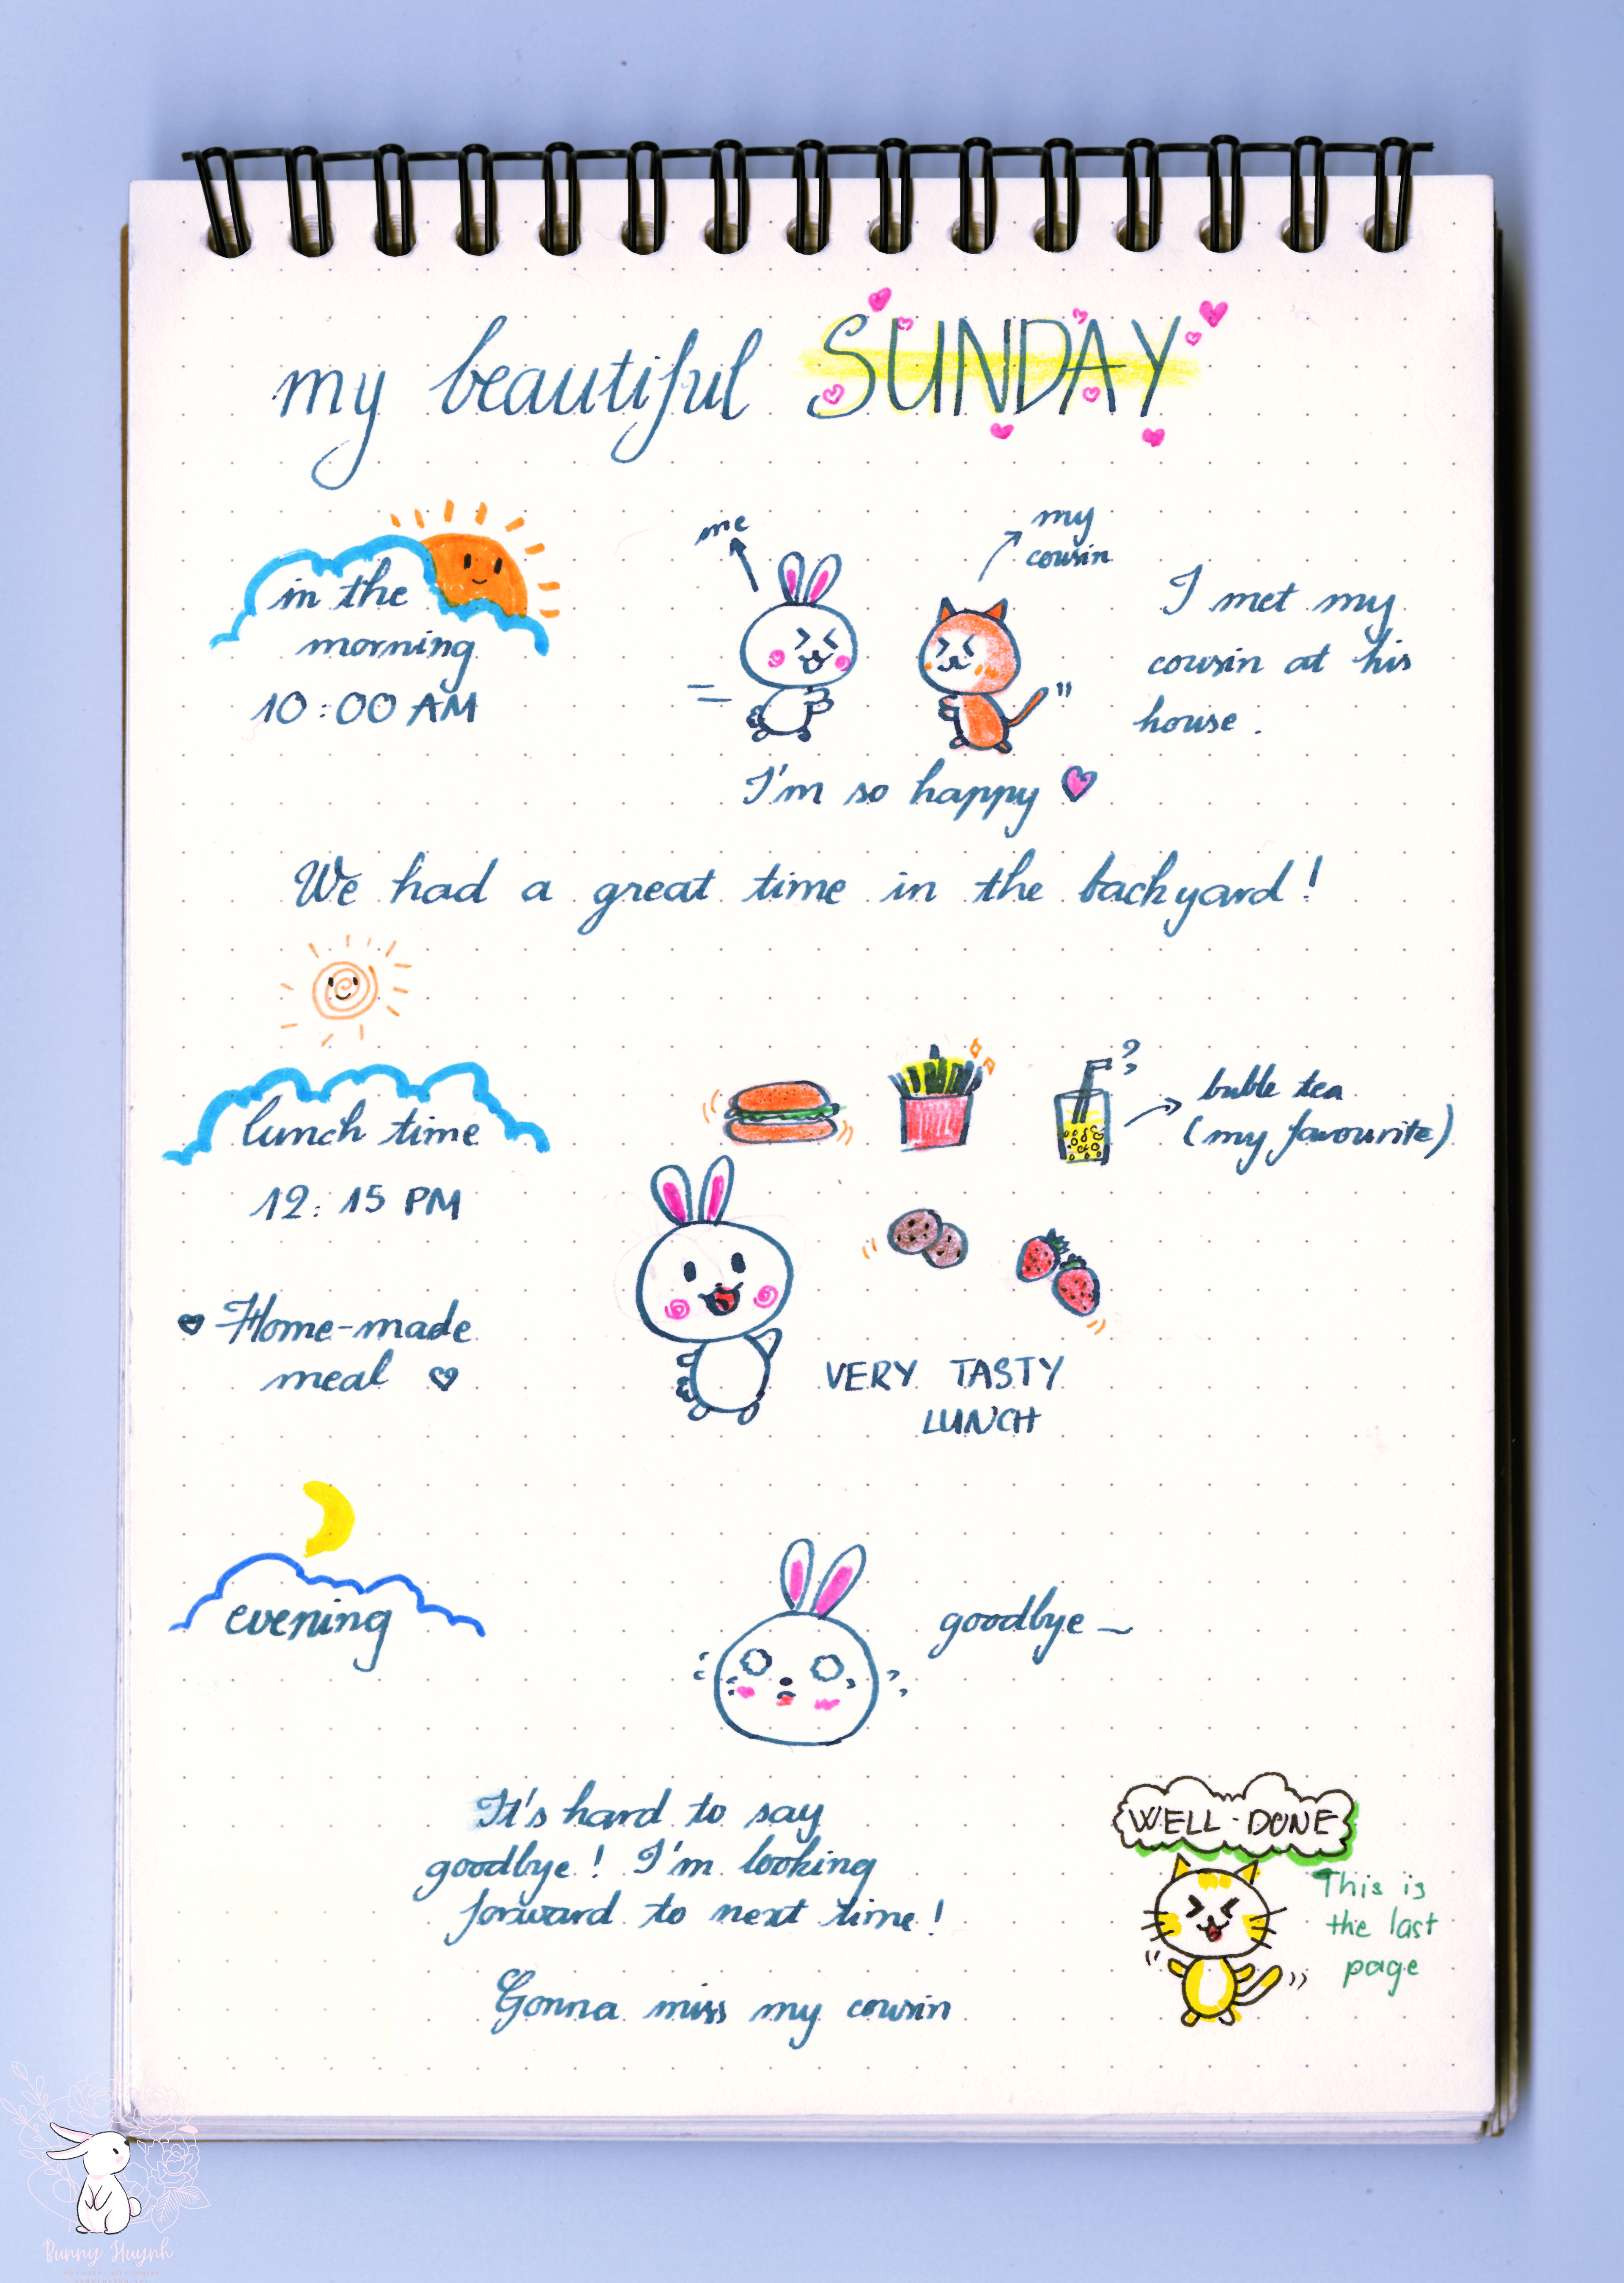 my beautiful SUNDAY
in the
morning
10:00 AM
me
my
cousin
I met my
cousin at his
house.
I'm so happy
We had a great time in the backyard!
lunch time
12:15 PM
buble tea
(my favourite)
Home-made
meal
VERY TASTY
LUNCH
evening
goodbye ~
It's hard to say
goodbye! I'm looking
forward to next time!
Gonna miss my cousin
WELL-DONE
This is
the last
page
Bunny Huynh